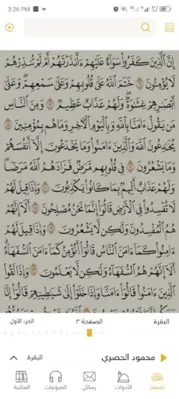 3:26 PM
إِنَّ ٱلَّذِينَ كَفَرُوا۟ سَوَآءٌ عَلَيْهِمْ ءَأَنذَرْتَهُمْ أَمْ لَمْ تُنذِرْهُمْ
لَا يُؤْمِنُونَ ٦ خَتَمَ ٱللَّهُ عَلَىٰ قُلُوبِهِمْ وَعَلَىٰ سَمْعِهِمْ ۖ وَعَلَىٰٓ
أَبْصَٰرِهِمْ غِشَٰوَةٌ ۖ وَلَهُمْ عَذَابٌ عَظِيمٌ ٧ وَمِنَ ٱلنَّاسِ
مَن يَقُولُ ءَامَنَّا بِٱللَّهِ وَبِٱلْيَوْمِ ٱلْءَاخِرِ وَمَا هُم بِمُؤْمِنِينَ ٨
يُخَٰدِعُونَ ٱللَّهَ وَٱلَّذِينَ ءَامَنُوا۟ وَمَا يَخْدَعُونَ إِلَّآ أَنفُسَهُمْ
وَمَا يَشْعُرُونَ ٩ فِى قُلُوبِهِم مَّرَضٌ فَزَادَهُمُ ٱللَّهُ مَرَضًا ۖ
وَلَهُمْ عَذَابٌ أَلِيمٌۢ بِمَا كَانُوا۟ يَكْذِبُونَ ١٠ وَإِذَا قِيلَ لَهُمْ
لَا تُفْسِدُوا۟ فِى ٱلْأَرْضِ قَالُوٓا۟ إِنَّمَا نَحْنُ مُصْلِحُونَ ١١ أَلَآ إِنَّهُمْ
هُمُ ٱلْمُفْسِدُونَ وَلَٰكِن لَّا يَشْعُرُونَ ١٢ وَإِذَا قِيلَ لَهُمْ
ءَامِنُوا۟ كَمَآ ءَامَنَ ٱلنَّاسُ قَالُوٓا۟ أَنُؤْمِنُ كَمَآ ءَامَنَ ٱلسُّفَهَآءُ ۗ
أَلَآ إِنَّهُمْ هُمُ ٱلسُّفَهَآءُ وَلَٰكِن لَّا يَعْلَمُونَ ١٣ وَإِذَا لَقُوا۟
ٱلَّذِينَ ءَامَنُوا۟ قَالُوٓا۟ ءَامَنَّا وَإِذَا خَلَوْا۟ إِلَىٰ شَيَٰطِينِهِمْ قَالُوٓا۟
البقرة الصفحة ٣ الجزء الأول
محمود الحصري البقرة
الأدوات رسائل الصوتيات المكتبة